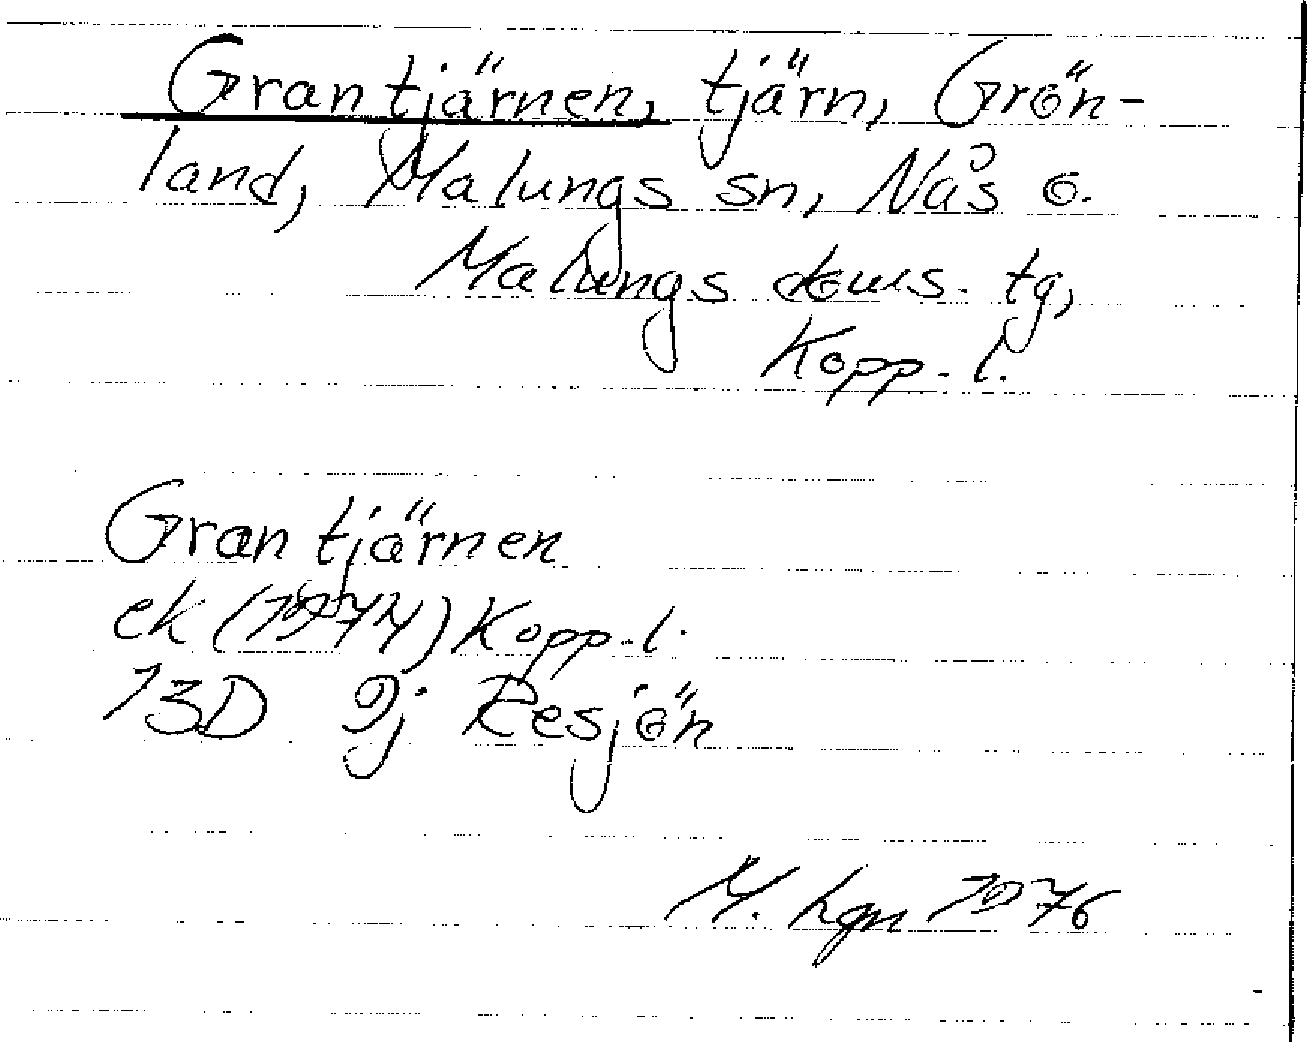 Grantjärnen, tjärn, Grön-
land, Malungs sn, Nås o.
Malungs doms. tg,
Kopp. l.
Grantjärnen
ek (1974) Kopp. l.
13D 9j Resjön
M. Lgn 1976